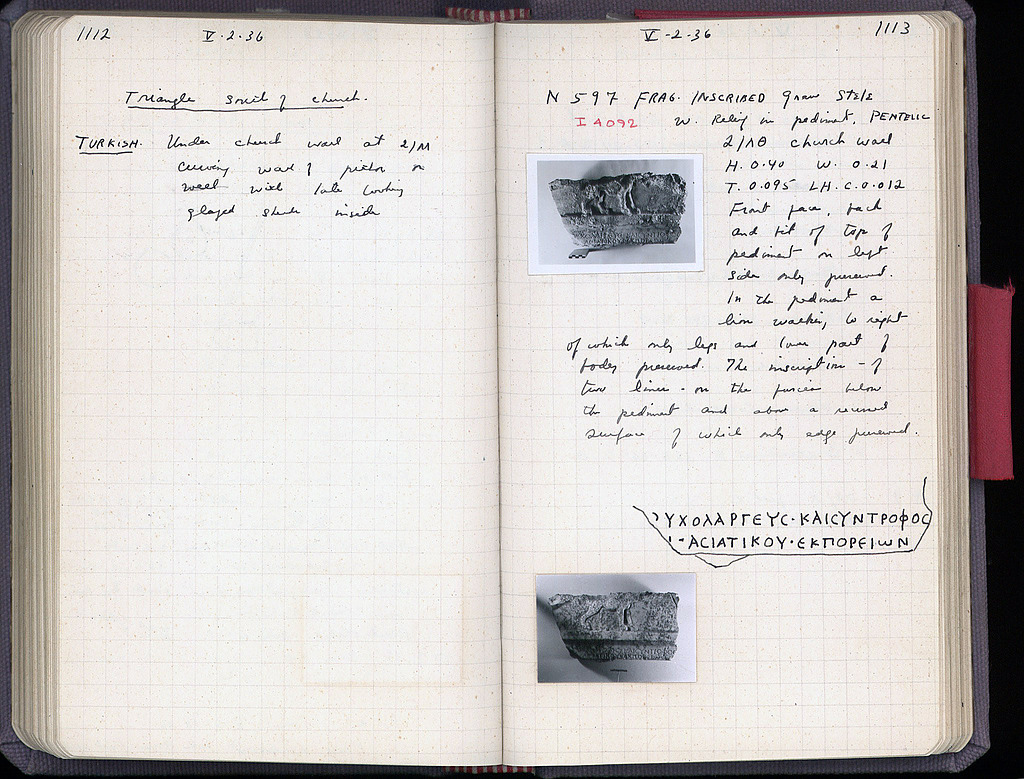 1112 V·2·36
Triangle south of church.
TURKISH. Under church wall at 2/ΛΛ
curving wall of pithos on
west with late looking
glazed sherds inside
V-2-36 1113
N 597 FRAG. INSCRIBED grave STELE
I 4092 W. Relief in pediment, PENTELIC
2/ΛΘ church wall
H. 0.40 W. 0.21
T. 0.095 LH. C. 0.012
Front face, back
and bit of top of
pediment on left
side only preserved.
In the pediment a
lion walking to right
of which only legs and lower part of
body preserved. The inscription - of
two lines - on the fascia below
the pediment and above a recessed
surface of which only edge preserved.
ΥΧΟΛΑΡΓΕΥϹ·ΚΑΙϹΥΝΤΡΟΦΟϹ
ΑϹΙΑΤΙΚΟΥ·ΕΚΠΟΡΕΙѠΝ